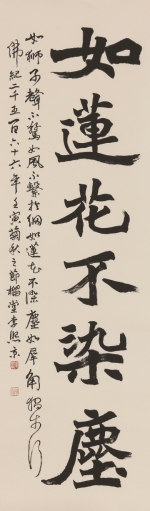 如蓮花不染塵
如獅子聲不驚如風不繫於網如蓮花不染塵如犀角獨步行
佛紀二千五百六十六年壬寅菊秋之節 堂李熙京